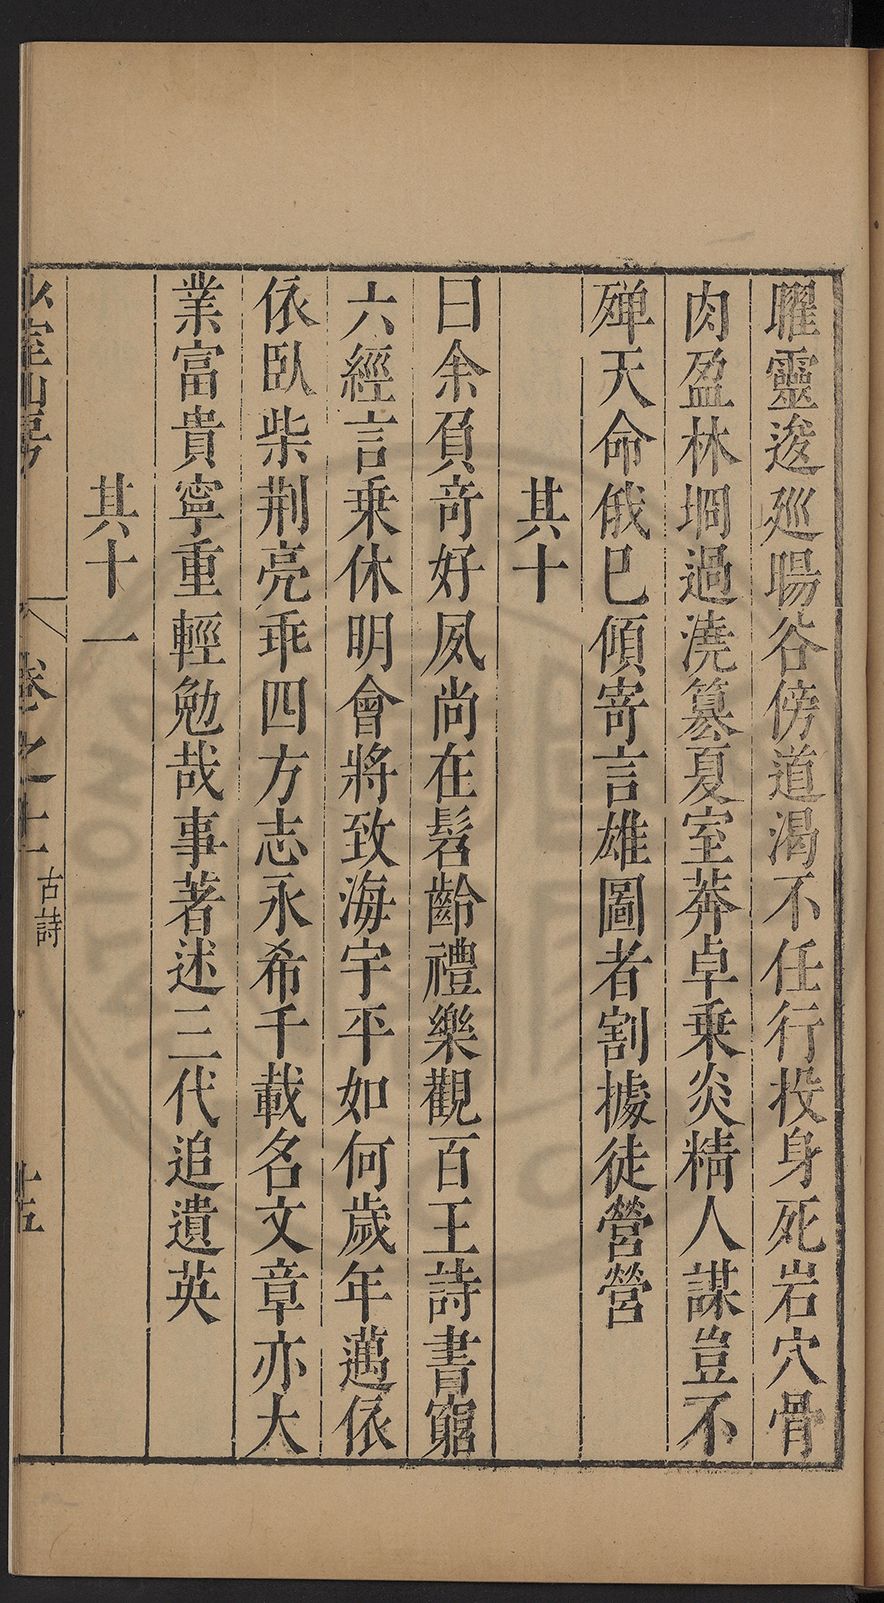 曜靈逡巡暘谷傍道渴不任行投身死岩穴骨
肉盈林坰過澆篡夏室莽卓乗炎精人謀豈不
殫天命俄巳傾寄言雄圖者割據徒營營
其十
曰余負竒好夙尚在髫齡禮樂觀百王詩書窮
六經言乗休明會將致海宇平如何歲年邁依
依臥柴荆亮乖四方志永希千載名文章亦大
業富貴寧重輕勉哉事著述三代追遺英
其十一
少室山房
卷之十
古詩
十五